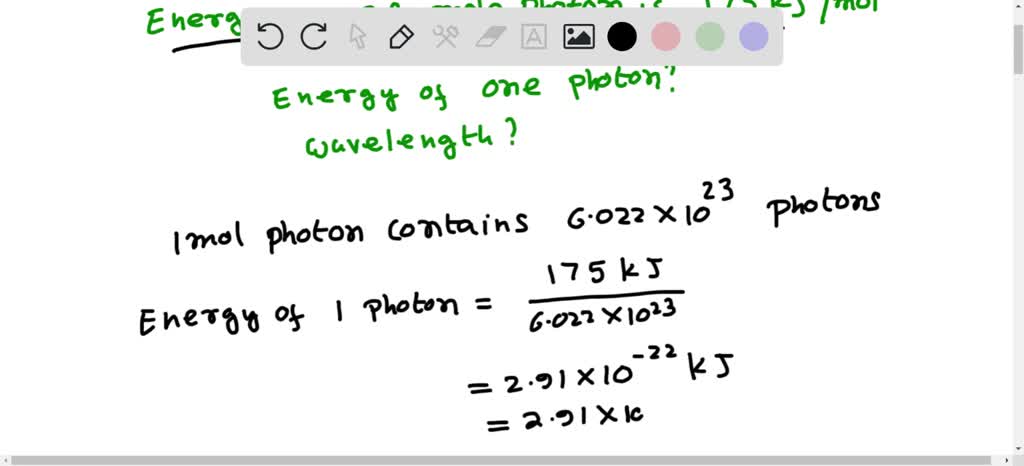 Energy photon is 175 kJ/mol
Energy of one photon?
wavelength?
1mol photon contains 6.022×10²³ photons
Energy of 1 photon = 175 kJ / 6.022×10²³
= 2.91×10⁻²² kJ
= 2.91×10